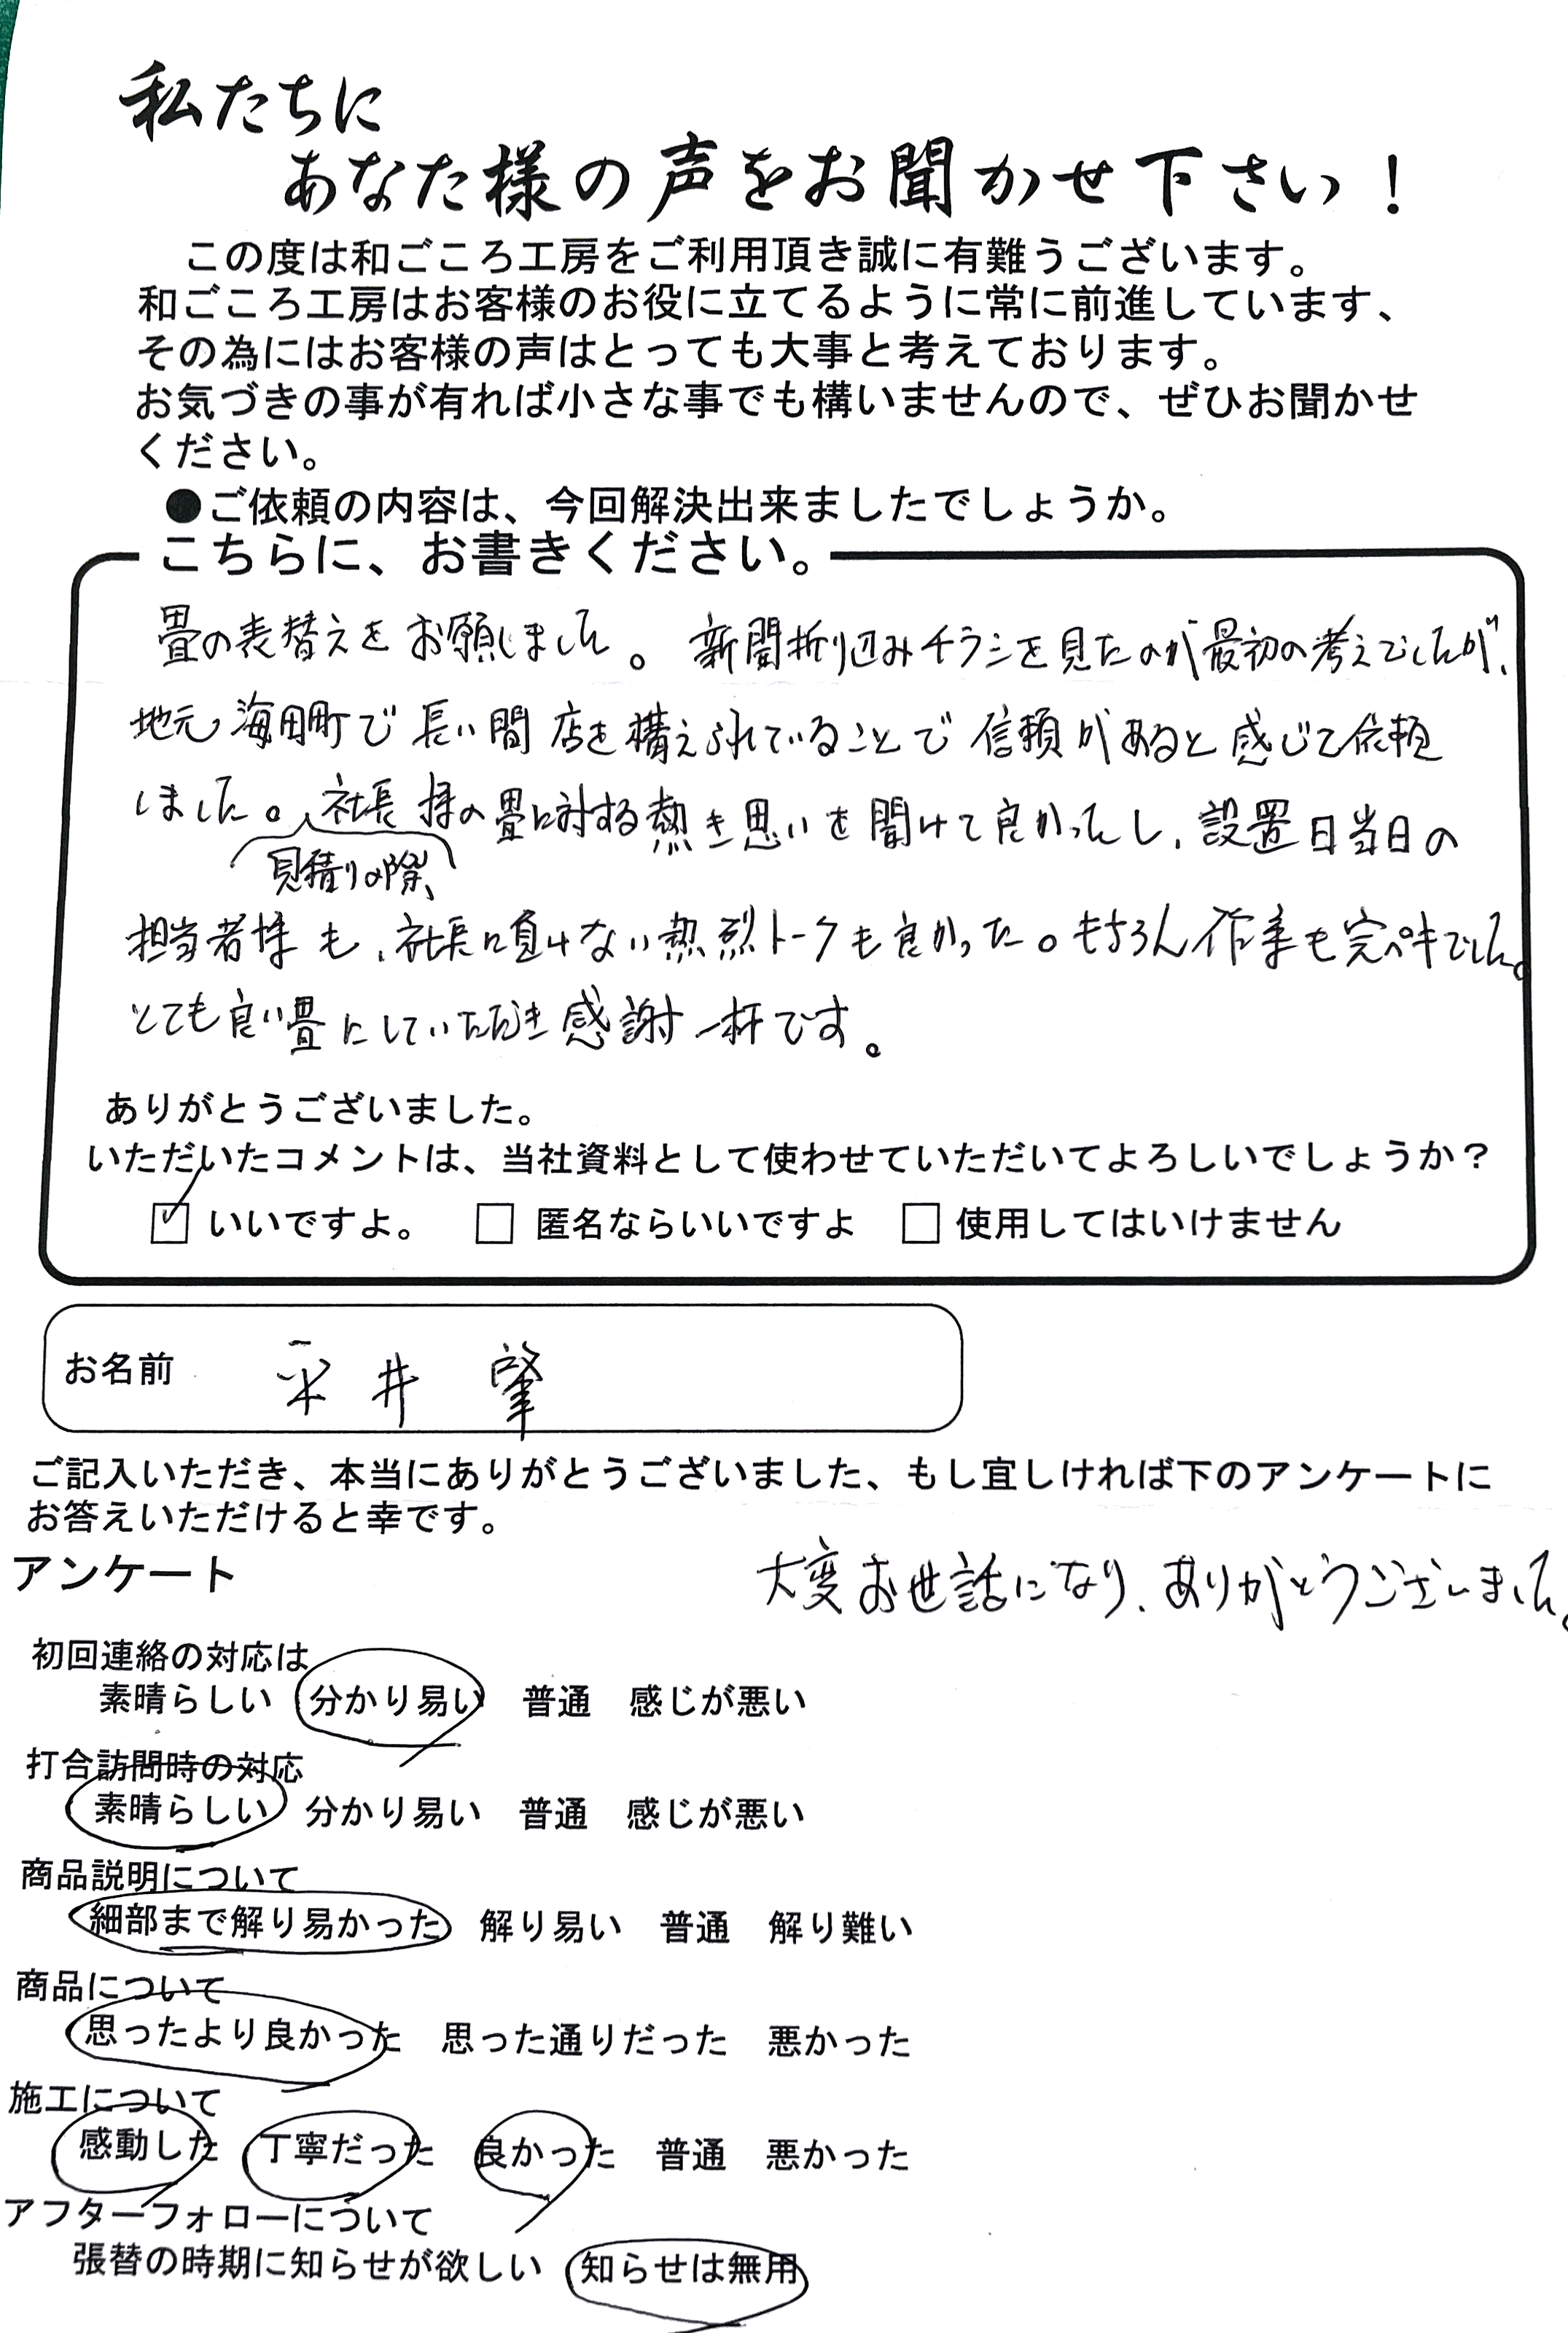 私たちに
あなた様の声をお聞かせ下さい！
この度は和ごころ工房をご利用頂き誠に有難うございます。
和ごころ工房はお客様のお役に立てるように常に前進しています、
その為にはお客様の声はとっても大事と考えております。
お気づきの事が有れば小さな事でも構いませんので、ぜひお聞かせ
ください。
●ご依頼の内容は、今回解決出来ましたでしょうか。
こちらに、お書きください。
畳の表替えをお願しました。新聞折り込みチラシを見たのが最初の考えでしたが、
地元海田町で長い間店を構えられていることで信頼があると感じて依頼
しました。社長様の畳に対する熱き思いを聞けて良かったし、設置日当日の
見積りの際、
担当者様も、社長に負けない熱烈トークも良かった。もちろん作業も完ペキでした。
とても良い畳にしていただき感謝一杯です。
ありがとうございました。
いただいたコメントは、当社資料として使わせていただいてよろしいでしょうか？
☑ いいですよ。 □ 匿名ならいいですよ □ 使用してはいけません
お名前 平井 肇
ご記入いただき、本当にありがとうございました、もし宜しければ下のアンケートに
お答えいただけると幸です。
アンケート
大変お世話になり、ありがとうございました。
初回連絡の対応は
素晴らしい 分かり易い 普通 感じが悪い
打合訪問時の対応
素晴らしい 分かり易い 普通 感じが悪い
商品説明について
細部まで解り易かった 解り易い 普通 解り難い
商品について
思ったより良かった 思った通りだった 悪かった
施工について
感動した 丁寧だった 良かった 普通 悪かった
アフターフォローについて
張替の時期に知らせが欲しい 知らせは無用